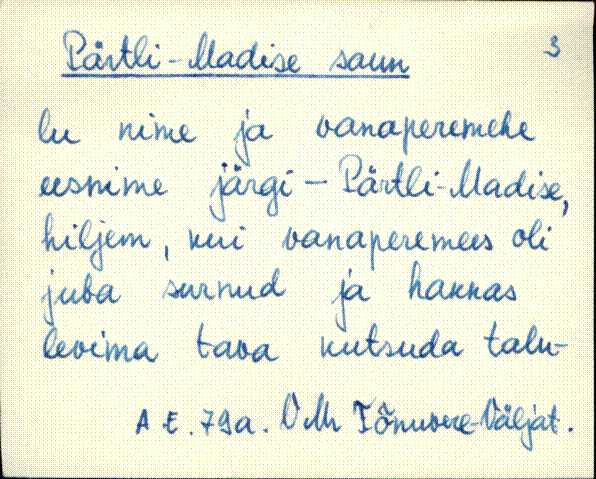 Pärtli-Madise saun 3
lu nime ja vanaperemehe
eesnime järgi – Pärtli-Madise,
hiljem, kui vanaperemees oli
juba surnud ja hakkas
levima tava kutsuda talu-
A E. 79a. VMr Tõnuvere-Väljat.